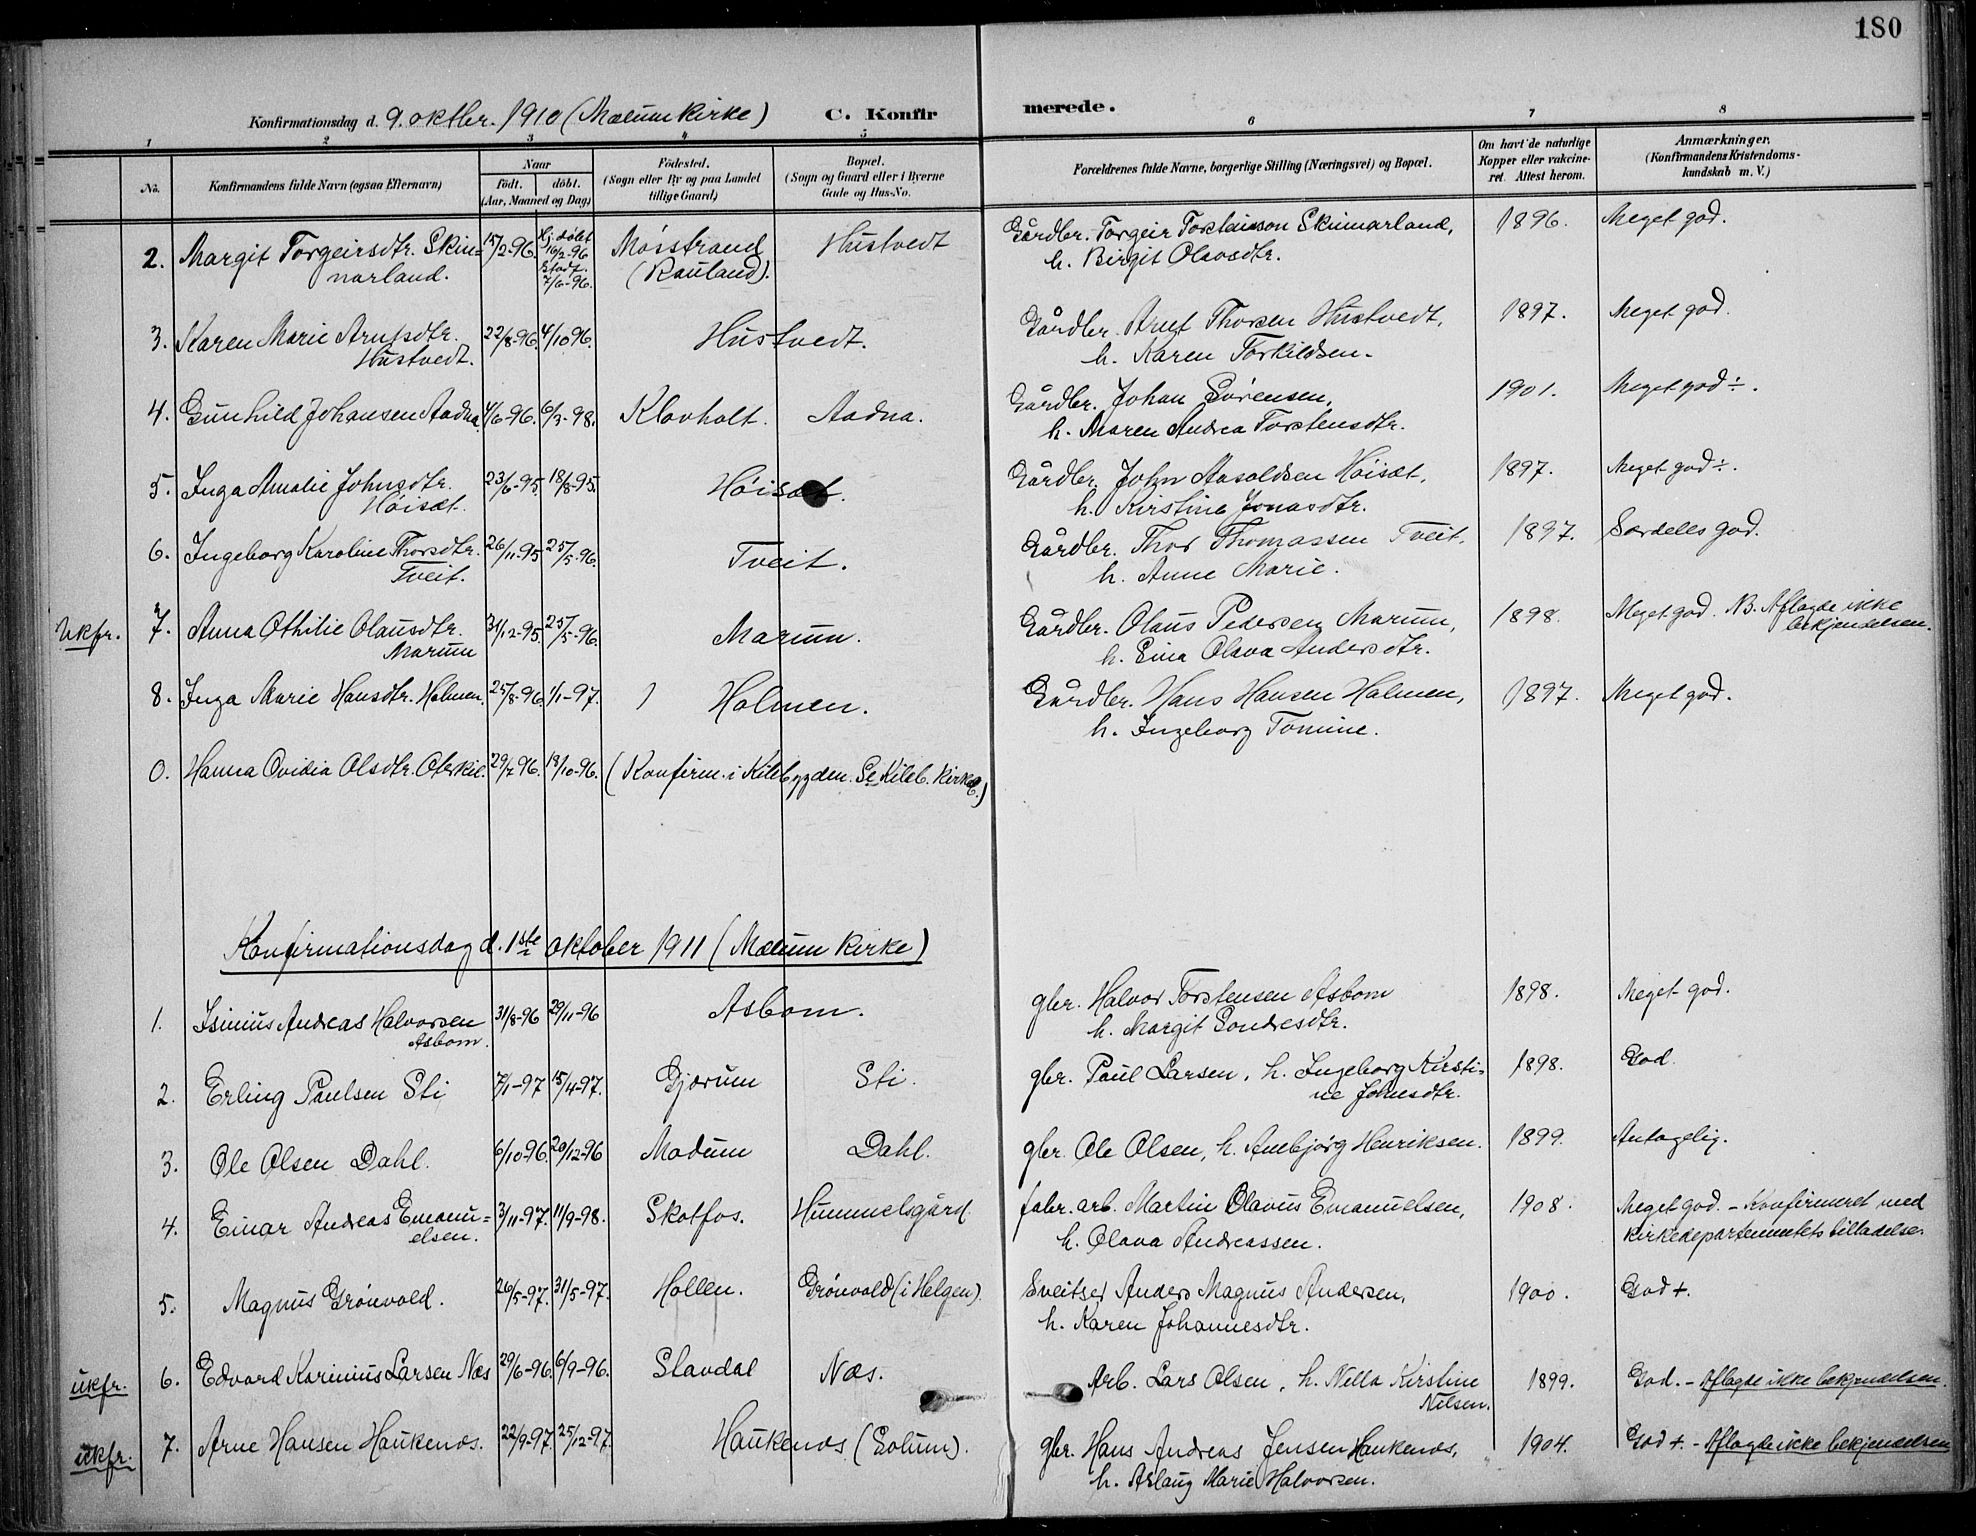 180
Konfirmationsdag d. 9. oktbr. 1910 (Mælum kirke) C. Konfirmerede.
1 2 3 4 5 6 7 8
No.
Konfirmandens fulde Navn (ogsaa Efternavn)
Naar
født. døbt.
(Aar, Maaned og Dag)
Fødested.
(Sogn eller By og paa Landet
tillige Gaard)
Bopæl.
(Sogn og Gaard eller i Byerne
Gade og Hus-No.
Forældrenes fulde Navne, borgerlige Stilling (Næringsvei) og Bopæl.
Om havt de naturlige
Kopper eller vakcine-
ret. Attest herom.
Anmærkninger.
(Konfirmandens Kristendoms-
kundskab m. V.)
2. Margit Torgeirsdtr. Skin= 15/2-96. Hj. døbt Møistrand Hustvedt Gårdbr. Torgeir Torsteinson Skinnarland, 1896. Meget god.
narland. 16/2-96 (Rauland). h. Birgit Olavsdtr.
7/6-96.
3. Karen Marie Arntsdtr. 22/8-96. 4/10 96. Hustvedt. Gårdbr. Arnt Thorsen Hustvedt, 1897. Meget god.
Hustvedt. h. Karen Torkildsen.
4. Gunhild Johansen Aadna 4/6-96. 6/3-98. Klovholt. Aadna. Gårdbr. Johan Sørensen, 1901. Meget god ÷.
h. Maren Andrea Torstensdtr.
5. Inga Amalie Johnsdtr. 23/6-95. 18/8-95. Høisæt. Gårdbr. John Aasoldsen Høisæt, 1897. Meget god ÷.
Høisæt. h. Kirstine Jonasdtr.
6. Ingeborg Karoline Thorsdtr. 26/11-95 25/5-96. Tveit. Gårdbr. Thor Thomassen Tveit, 1897. Særdeles god.
Tveit. h. Anne Marie.
Ukfr. 7. Anna Othilie Olausdtr. 31/12-95. 25/5-96. Marum. Gårdbr. Olaus Pedersen Marum, 1898. Meget god. NB. Aflagde ikke
Marum h. Eina Olava Andersdtr. bekjendelsen.
8. Inga Marie Hansdtr. Holmen. 25/8-96. 1/1-97. Holmen. Gårdbr. Hans Hansen Holmen, 1897. Meget god.
h. Ingeborg Tomine.
0. Hanna Ovidia Olsdtr. Oterkil. 29/7-96. 18/10-96. (Konfirm. i Kilebygden. Se Kileb. kirke.)
Konfirmationsdag d. 1ste oktober 1911 (Mælum kirke)
1. Isinius Andreas Halvorsen 31/8-96 29/11-96 Asbom. gbr. Halvor Torstensen Asbom 1898. Meget god.
Asbom. h. Margit Sondresdtr.
2. Erling Paulsen Sti 7/1-97 15/4-97. Gjerum Sti. gbr. Paul Larsen, h. Ingeborg Kirsti= 1898. God
ne Johnsdtr.
3. Ole Olsen Dahl. 6/10-96. 20/12-96 Modum Dahl. gbr. Ole Olsen, h. Anbjørg Henriksen. 1899. Antagelig.
4. Einar Andreas Emanu= 3/11-97. 11/9-98. Skotfos. Hummelsgård. fabr. arb. Martin Olavus Emanuelsen, 1908. Meget god. - Konfirmeret med
elsen. h. Olava Andreassen. kirkedepartementets tilladelse.
5. Magnus Grønvold. 26/5-97. 31/5-97. Hollen. Grønvold (i Helgen). Sveitser Anders Magnus Andersen, 1900. God +.
h. Karen Johannesdtr.
ukfr. 6. Edvard Karinius Larsen Næs 29/6-96. 6/9-96. Slavdal Næs. Arb. Lars Olsen, h. Nella Kirstine 1899. God. - Aflagde ikke bekjendelsen.
Nilsen.
ukfr. 7. Arne Hansen Haukenæs. 22/9-97. 25/12-97. Haukenæs (Solum). gbr. Hans Andreas Jensen Haukenæs, 1904. God +. - Aflagde ikke bekjendelsen
h. Aslaug Marie Halvorsen.